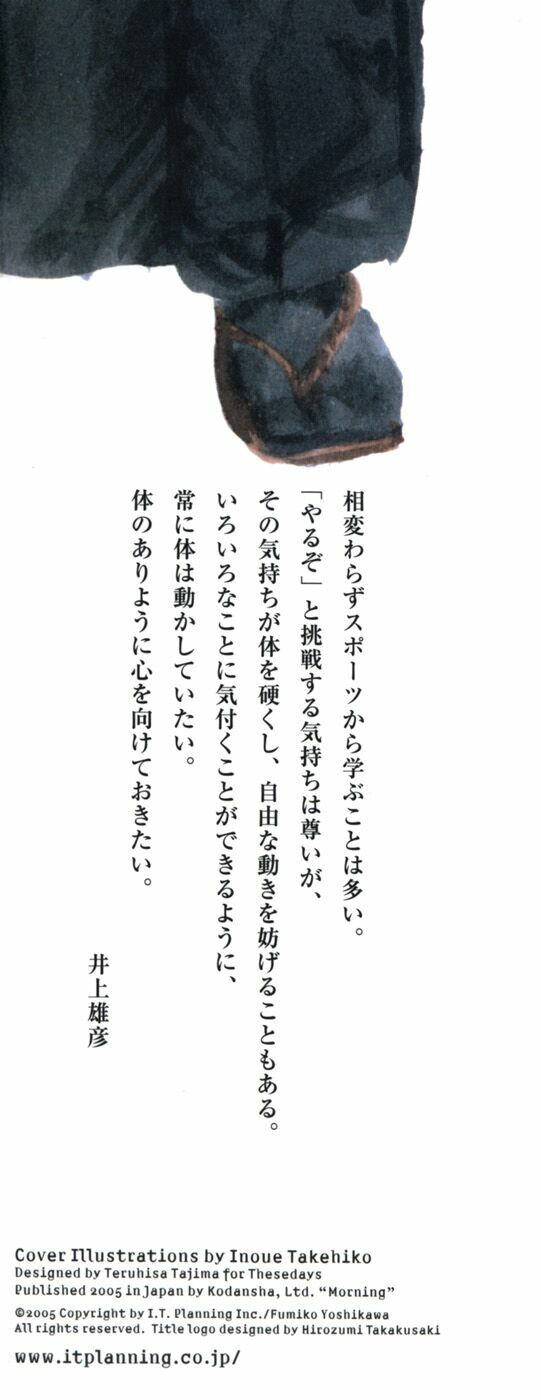 相変わらずスポーツから学ぶことは多い。
「やるぞ」と挑戦する気持ちは尊いが、
その気持ちが体を硬くし、自由な動きを妨げることもある。
いろいろなことに気付くことができるように、
常に体は動かしていたい。
体のありように心を向けておきたい。
井上雄彦
Cover Illustrations by Inoue Takehiko
Designed by Teruhisa Tajima for Thesedays
Published 2005 in Japan by Kodansha, Ltd. “Morning”
©2005 Copyright by I.T. Planning Inc./Fumiko Yoshikawa
All rights reserved. Title logo designed by Hirozumi Takakusaki
www.itplanning.co.jp/